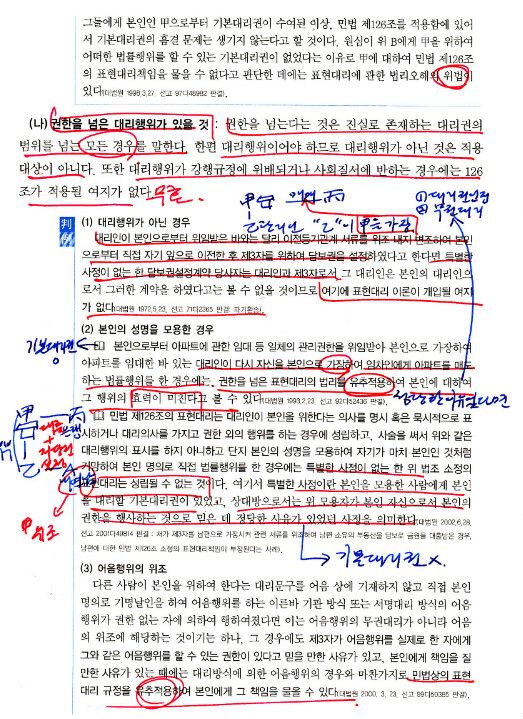 그들에게 본인인 甲으로부터 기본대리권이 수여된 이상, 민법 제126조를 적용함에 있어
서 기본대리권의 흠결 문제는 생기지 않는다고 할 것이다. 원심이 위 B에게 甲을 위하여
어떠한 법률행위를 할 수 있는 기본대리권이 없었다는 이유로 甲에 대하여 민법 제126조
의 표현대리책임을 물을 수 없다고 판단한 데에는 표현대리에 관한 법리오해의 위법이
있다(대법원 1998.3.27. 선고 97다48982 판결).
(나) 권한을 넘은 대리행위가 있을 것 : 권한을 넘는다는 것은 진실로 존재하는 대리권의
범위를 넘는 모든 경우를 말한다. 한편 대리행위이어야 하므로 대리행위가 아닌 것은 적용
대상이 아니다. 또한 대리행위가 강행규정에 위배되거나 사회질서에 반하는 경우에는 126
조가 적용될 여지가 없다. 무효
甲 매매 丙
"乙" 甲을 가장
① 대리권
② 무권대리
판례
(1) 대리행위가 아닌 경우
대리인이 본인으로부터 위임받은 바와는 달리 이전등기관계 서류를 위조 내지 변조하여 본인
으로부터 직접 자기 앞으로 이전한 후 제3자를 위하여 담보권을 설정하였다고 한다면 특별한
사정이 없는 한 담보권설정계약 당사자는 대리인과 제3자로서 그 대리인은 본인의 대리인으
로서 그러한 계약을 하였다고는 볼 수 없을 것이므로 여기에 표현대리 이론이 개입될 여지
가 없다(대법원 1972.5.23. 선고 71다2365 판결 파기환송).
(2) 본인의 성명을 모용한 경우
기본대리권 ○
본인으로부터 아파트에 관한 임대 등 일체의 관리권한을 위임받아 본인으로 가장하여
아파트를 임대한 바 있는 대리인이 다시 자신을 본인으로 가장하여 임차인에게 아파트를 매도
하는 법률행위를 한 경우에는, 권한을 넘은 표현대리의 법리를 유추적용하여 본인에 대하여
그 행위의 효력이 미친다고 볼 수 있다(대법원 1993.2.23. 선고 92다52436 판결).
민법 제126조의 표현대리는 대리인이 본인을 위한다는 의사를 명시 혹은 묵시적으로 표
시하거나 대리의사를 가지고 권한 외의 행위를 하는 경우에 성립하고, 사술을 써서 위와 같은
대리행위의 표시를 하지 아니하고 단지 본인의 성명을 모용하여 자기가 마치 본인인 것처럼
기망하여 본인 명의로 직접 법률행위를 한 경우에는 특별한 사정이 없는 한 위 법조 소정의
표현대리는 성립될 수 없는 것이다. 여기서 특별한 사정이란 본인을 모용한 사람에게 본인
을 대리할 기본대리권이 있었고, 상대방으로서는 위 모용자가 본인 자신으로서 본인의
권한을 행사하는 것으로 믿은 데 정당한 사유가 있었던 사정을 의미한다(대법원 2002.6.28.
선고 2001다49814 판결 : 처가 제3자를 남편으로 가장시켜 관련 서류를 위조하여 남편 소유의 부동산을 담보로 금원을 대출받은 경우,
남편에 대한 민법 제126조 소정의 표현대리책임이 부정된다는 사례).
甲 丙
乙
甲 위조
기본대리권 X.
(3) 어음행위의 위조
다른 사람이 본인을 위하여 한다는 대리문구를 어음 상에 기재하지 않고 직접 본인
명의로 기명날인을 하여 어음행위를 하는 이른바 기관 방식 또는 서명대리 방식의 어음
행위가 권한 없는 자에 의하여 행하여졌다면 이는 어음행위의 무권대리가 아니라 어음
의 위조에 해당하는 것이기는 하나. 그 경우에도 제3자가 어음행위를 실제로 한 자에게
그와 같은 어음행위를 할 수 있는 권한이 있다고 믿을 만한 사유가 있고, 본인에게 책임을 질
만한 사유가 있는 때에는 대리방식에 의한 어음행위의 경우와 마찬가지로 민법상의 표현
대리 규정을 유추적용하여 본인에게 그 책임을 물을 수 있다(대법원 2000. 3. 23. 선고 99다50385 판결).